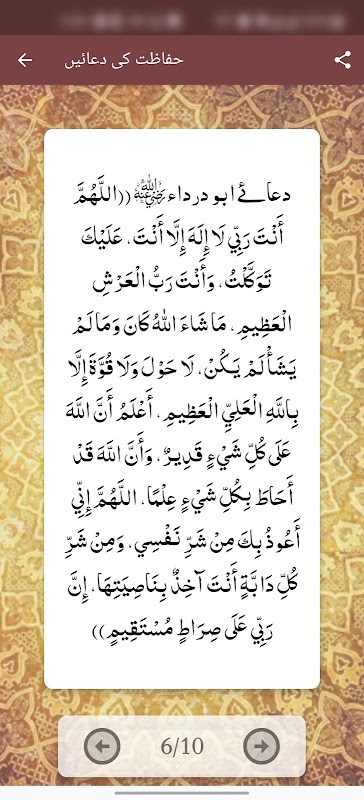 حفاظت کی دعائیں
دعائے ابو درداء رضي الله عنه ((اللَّهُمَّ
أَنْتَ رَبِّي لَا إِلَهَ إِلَّا أَنْتَ، عَلَيْكَ
تَوَكَّلْتُ، وَأَنْتَ رَبُّ الْعَرْشِ
الْعَظِيمِ، مَا شَاءَ اللهُ كَانَ وَمَا لَمْ
يَشَأْ لَمْ يَكُنْ، لَا حَوْلَ وَلَا قُوَّةَ إِلَّا
بِاللَّهِ الْعَلِيِّ الْعَظِيمِ، أَعْلَمُ أَنَّ اللَّهَ
عَلَى كُلِّ شَيْءٍ قَدِيرٌ، وَأَنَّ اللَّهَ قَدْ
أَحَاطَ بِكُلِّ شَيْءٍ عِلْمًا، اللَّهُمَّ إِنِّي
أَعُوذُ بِكَ مِنْ شَرِّ نَفْسِي، وَمِنْ شَرِّ
كُلِّ دَابَّةٍ أَنْتَ آخِذٌ بِنَاصِيَتِهَا، إِنَّ
رَبِّي عَلَى صِرَاطٍ مُسْتَقِيمٍ))
6/10